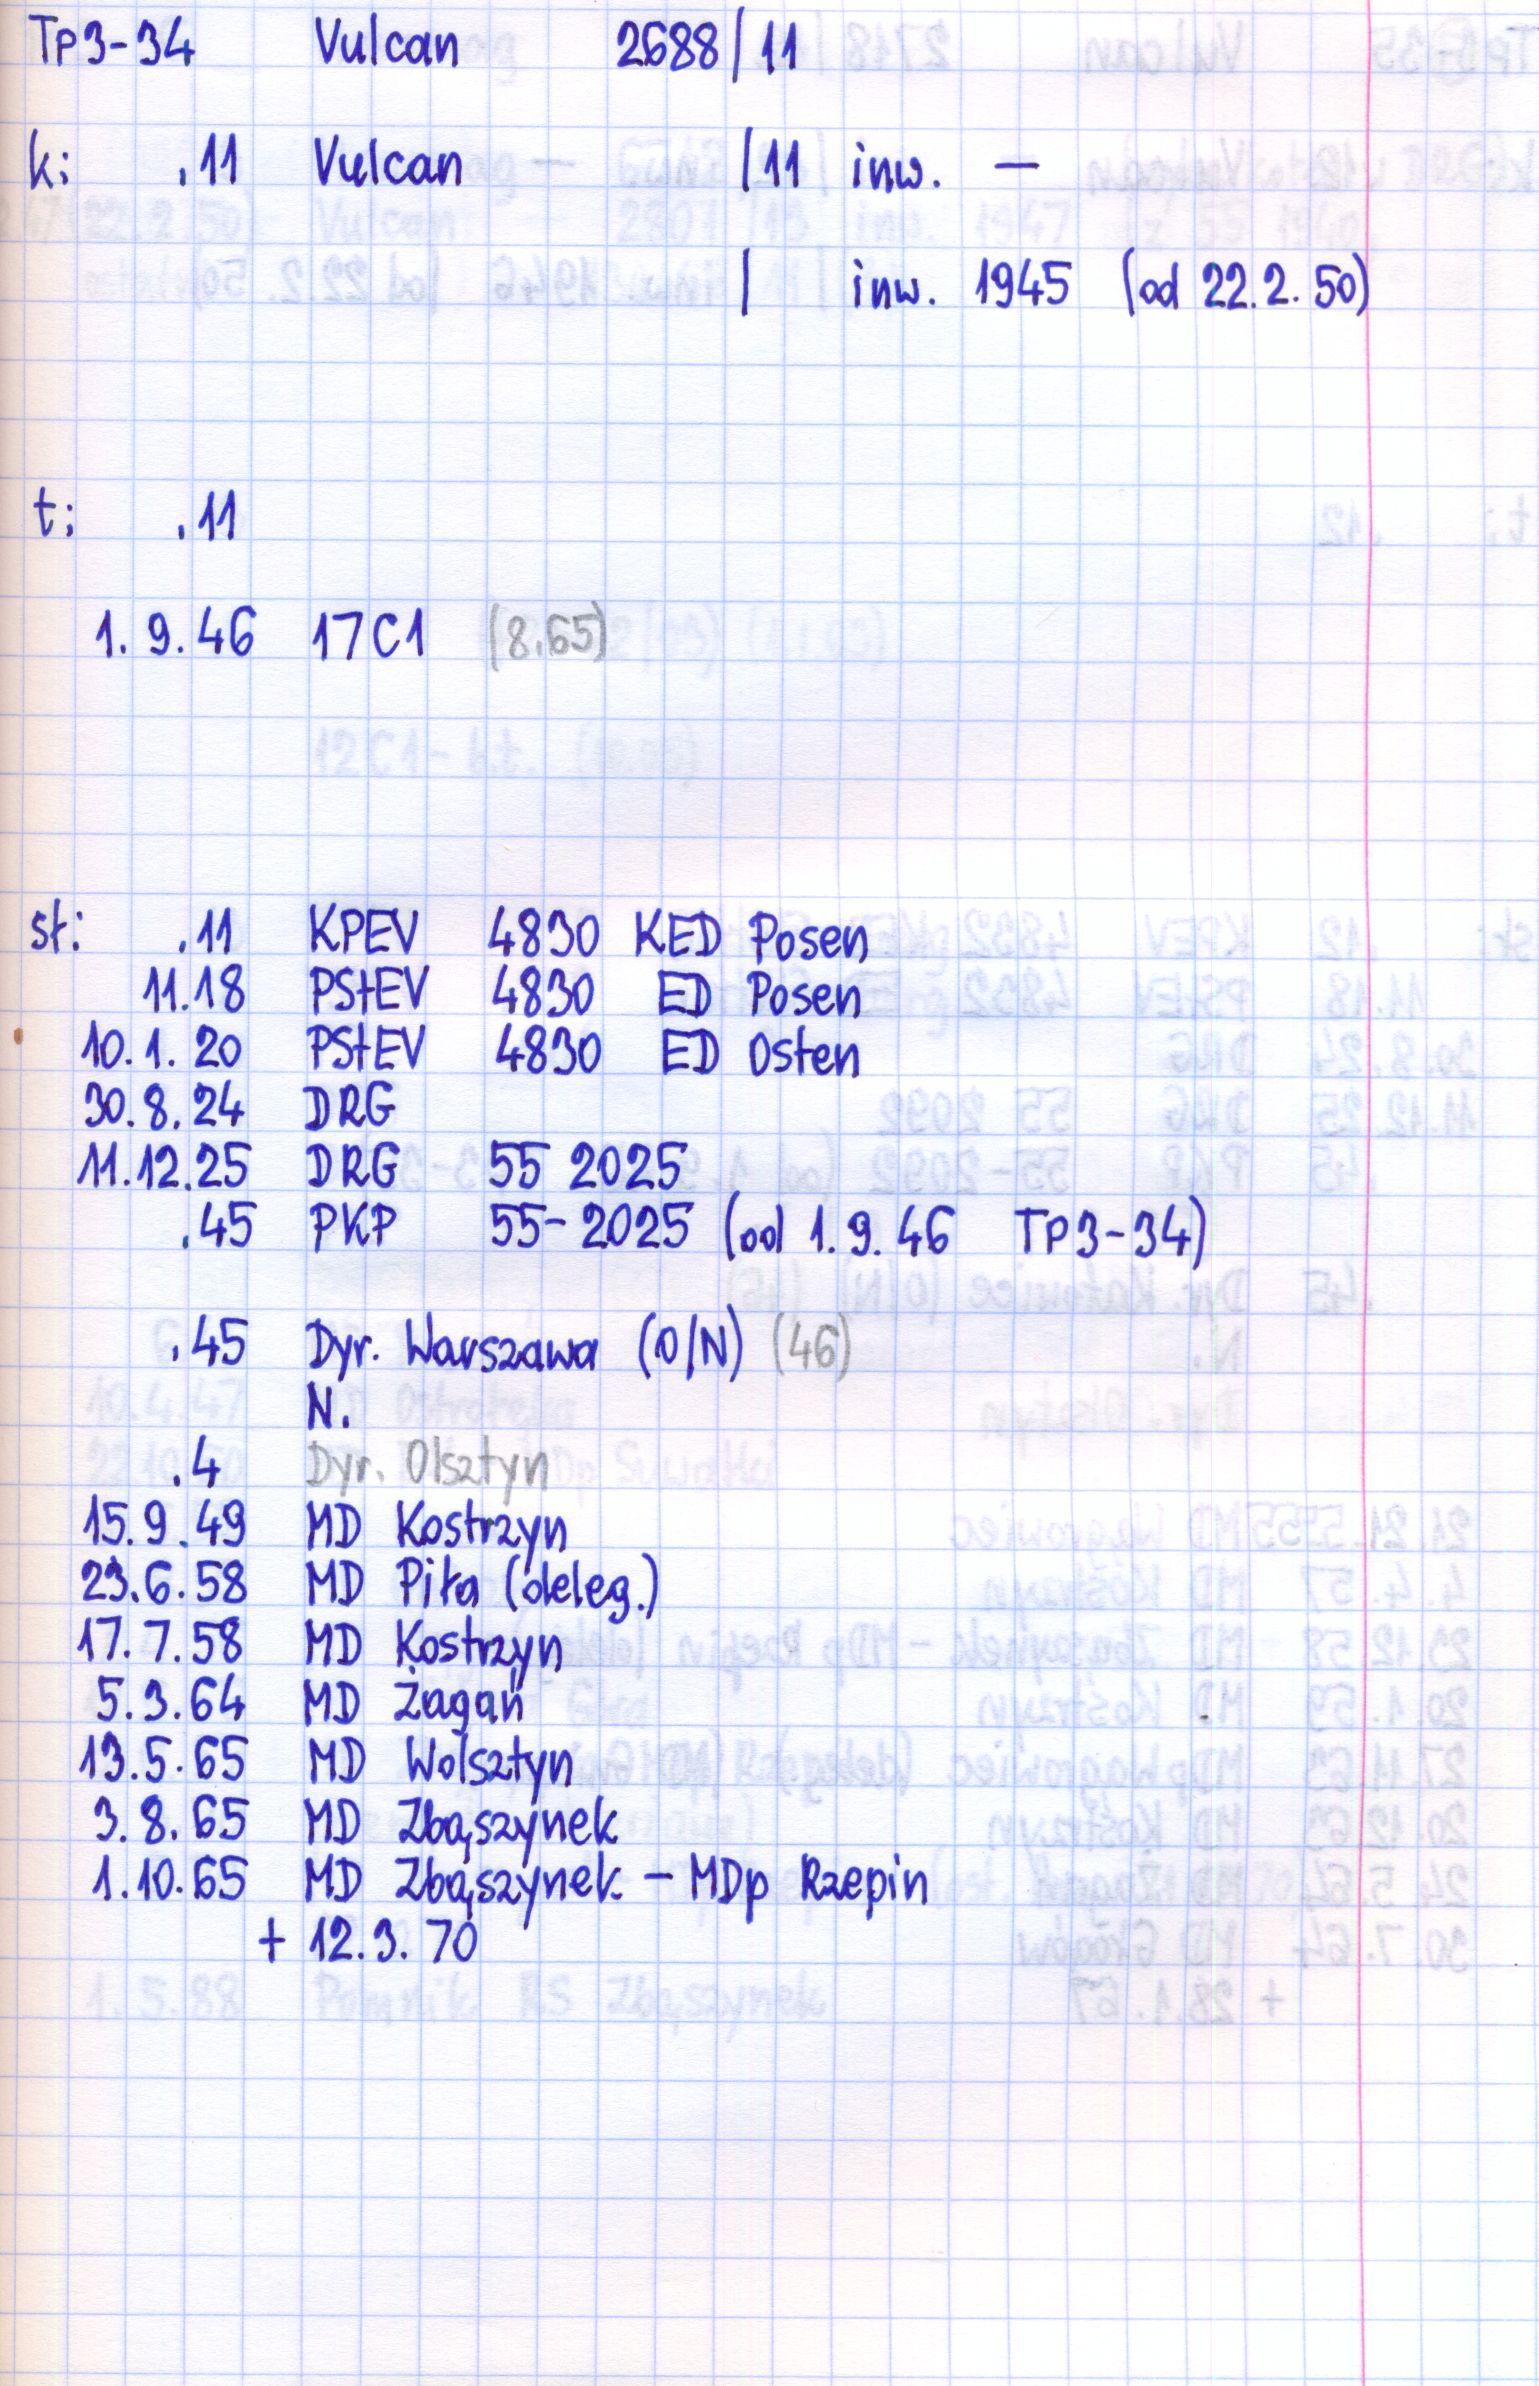 Tp3-34 Vulcan 2688/11
k: .11 Vulcan /11 inw. —
/ inw. 1945 (od 22.2.50)
t: .11
1.9.46 17C1 (8.65)
st: .11 KPEV 4830 KED Posen
11.18 PStEV 4830 ED Posen
10.1.20 PStEV 4830 ED Osten
30.8.24 DRG
11.12.25 DRG 55 2025
.45 PKP 55-2025 (od 1.9.46 TP3-34)
.45 Dyr. Warszawa (O/N) (46)
N.
.4 Dyr. Olsztyn
15.9.49 MD Kostrzyn
23.6.58 MD Piła (deleg.)
17.7.58 MD Kostrzyn
5.3.64 MD Żagań
13.5.65 MD Wolsztyn
3.8.65 MD Zbąszynek
1.10.65 MD Zbąszynek - MDp Rzepin
+ 12.3.70